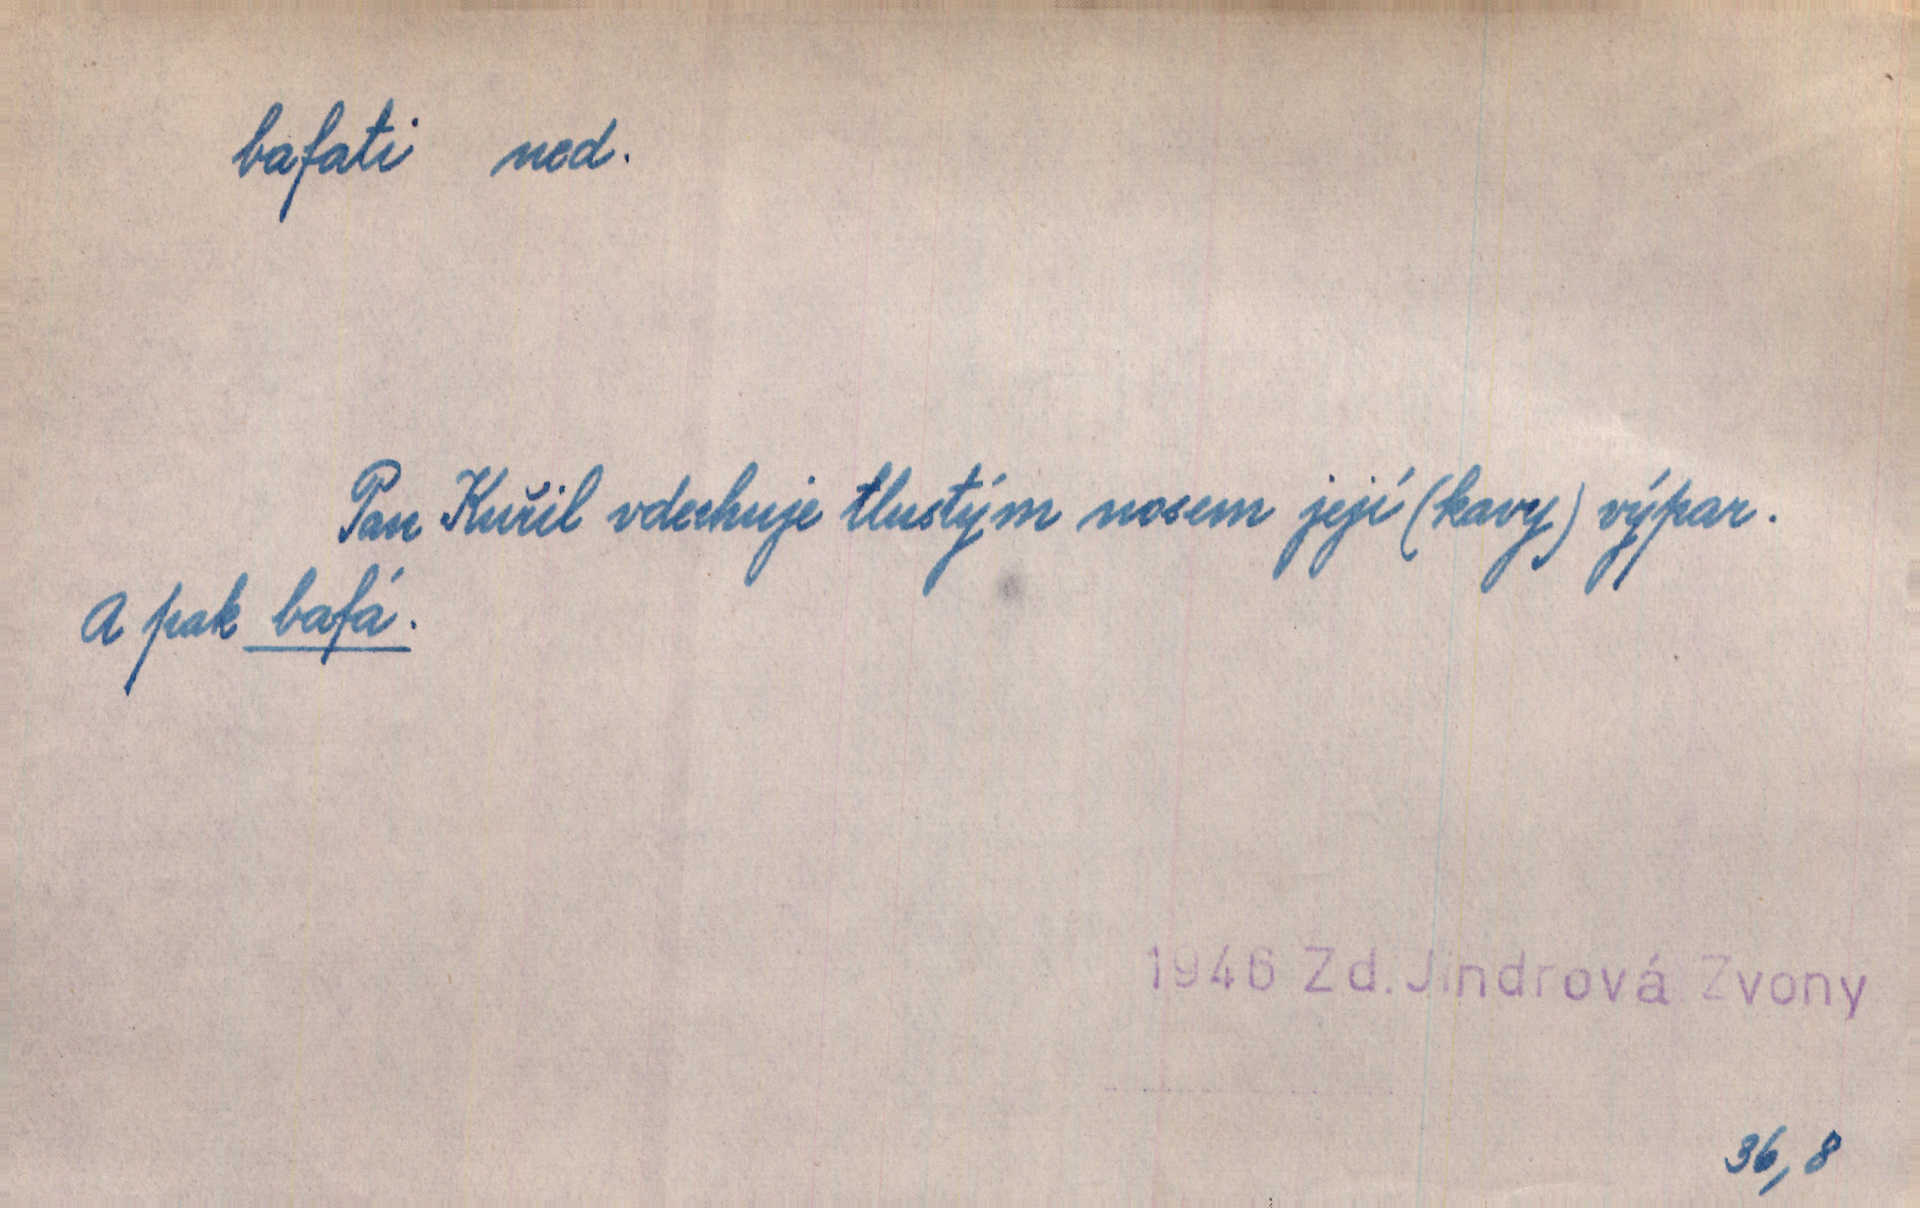 bafati ned.
Pan Kuřil vdechuje tlustým nosem její (kavy) výpar.
A pak bafá.
1946 Zd. Jindrová Zvony
36,8